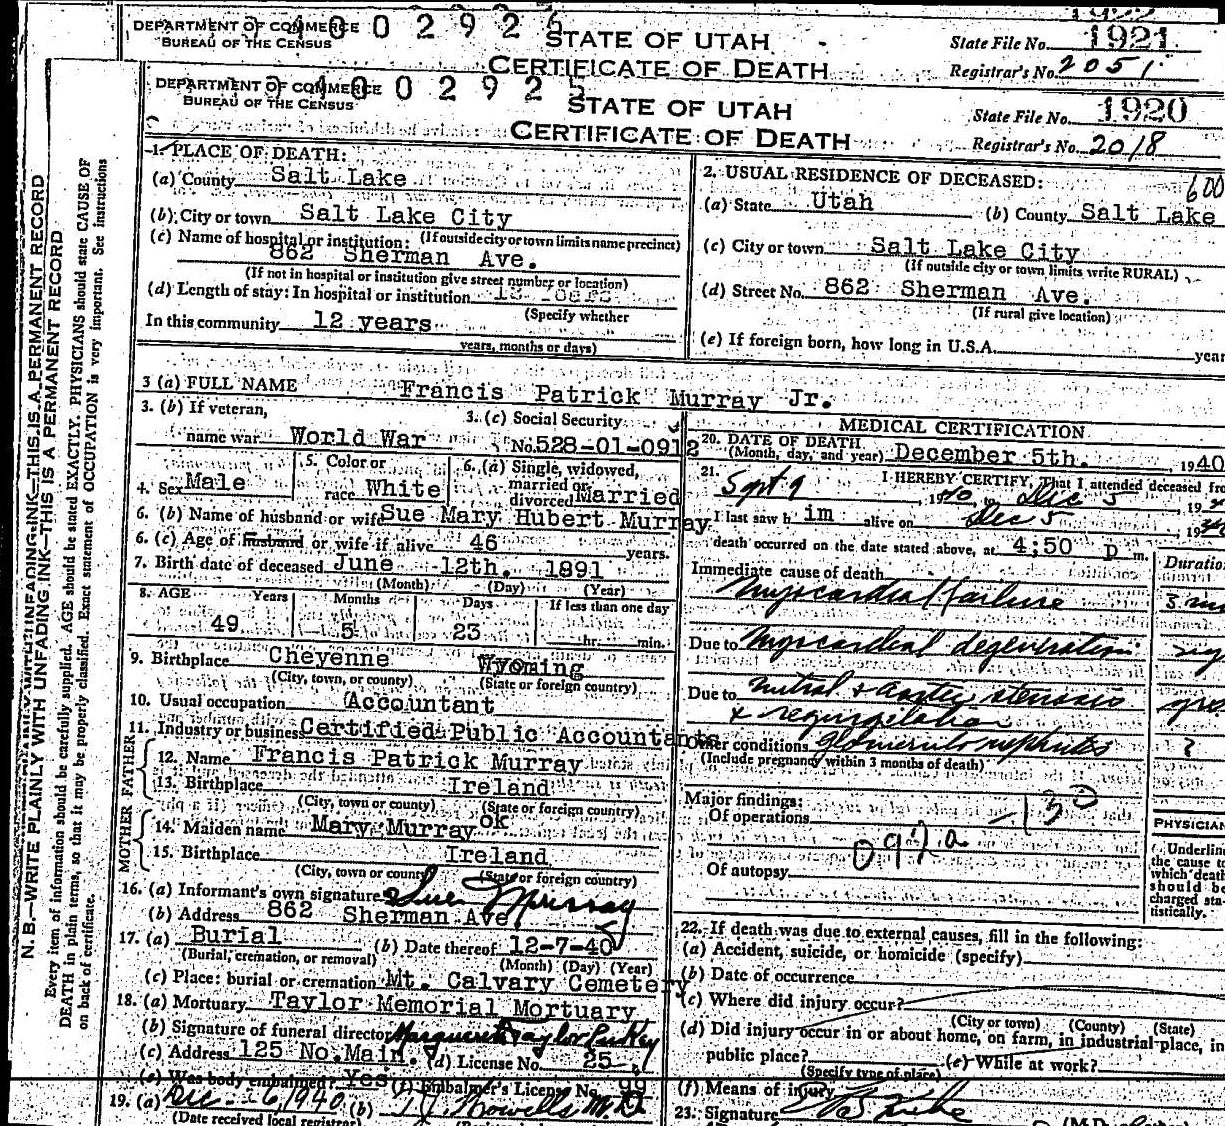 DEPARTMENT OF COMMERCE
BUREAU OF THE CENSUS
4002926
STATE OF UTAH
CERTIFICATE OF DEATH
State File No. 1921
Registrar's No. 2051
DEPARTMENT OF COMMERCE
BUREAU OF THE CENSUS
400292
STATE OF UTAH
CERTIFICATE OF DEATH
State File No. 1920
Registrar's No. 2018
N. B.—WRITE PLAINLY WITH UNFADING INK—THIS IS A PERMANENT RECORD
Every item of information should be carefully supplied. AGE should be stated EXACTLY. PHYSICIANS should state CAUSE OF
DEATH in plain terms, so that it may be properly classified. Exact statement of OCCUPATION is very important. See instructions
on back of certificate.
1. PLACE OF DEATH:
(a) County Salt Lake
(b) City or town Salt Lake City
(c) Name of hospital or institution: (If outside city or town limits name precinct)
862 Sherman Ave.
(If not in hospital or institution give street number or location)
(d) Length of stay: In hospital or institution
(Specify whether
In this community 12 years
years, months or days)
2. USUAL RESIDENCE OF DECEASED: 600
(a) State Utah (b) County Salt Lake
(c) City or town Salt Lake City
(If outside city or town limits write RURAL)
(d) Street No. 862 Sherman Ave.
(If rural give location)
(e) If foreign born, how long in U.S.A. year
3 (a) FULL NAME Francis Patrick Murray Jr.
3. (b) If veteran, name war World War
3. (c) Social Security No. 528-01-0912
4. Sex Male
5. Color or race White
6. (a) Single, widowed, married or divorced Married
6. (b) Name of husband or wife Sue Mary Hubert Murray
6. (c) Age of husband or wife if alive 46 years.
7. Birth date of deceased June 12th. 1891
(Month) (Day) (Year)
8. AGE Years Months Days If less than one day
49 5 23 hr. min.
9. Birthplace Cheyenne Wyoming
(City, town, or county) (State or foreign country)
10. Usual occupation Accountant
11. Industry or business Certified Public Accountants
FATHER
12. Name Francis Patrick Murray
13. Birthplace Ireland
(City, town or county) (State or foreign country)
MOTHER
14. Maiden name Mary Murray ok
15. Birthplace Ireland
(City, town or county) (State or foreign country)
16. (a) Informant's own signature Sue Murray
(b) Address 862 Sherman Ave.
17. (a) Burial (b) Date thereof 12-7-40
(Burial, cremation, or removal) (Month) (Day) (Year)
(c) Place: burial or cremation Mt. Calvary Cemetery
18. (a) Mortuary Taylor Memorial Mortuary
(b) Signature of funeral director
(c) Address 125 No. Main. (d) License No. 25
(e) Was body embalmed? Yes (f) Embalmer's License No. 99
19. (a) Dec. 6, 1940 (b)
(Date received local registrar)
MEDICAL CERTIFICATION
20. DATE OF DEATH
(Month, day, and year) December 5th. , 1940
21. I HEREBY CERTIFY, That I attended deceased fro
Sept 9 , 1940, to Dec 5 , 19
I last saw h im alive on Dec 5 , 19
death occurred on the date stated above, at 4:50 p m.
Immediate cause of death Duration
Myocardial failure
Due to Myocardial degeneration
Due to Mitral & Aortic stenosis
& regurgitation
Other conditions Glomerulo nephritis ?
(Include pregnancy within 3 months of death)
Major findings:
Of operations
Of autopsy
PHYSICIAN
Underline
the cause to
which death
should be
charged sta-
tistically.
22. If death was due to external causes, fill in the following:
(a) Accident, suicide, or homicide (specify)
(b) Date of occurrence
(c) Where did injury occur?
(City or town) (County) (State)
(d) Did injury occur in or about home, on farm, in industrial place, in
public place? (e) While at work?
(Specify type of place)
(f) Means of injury
23. Signature